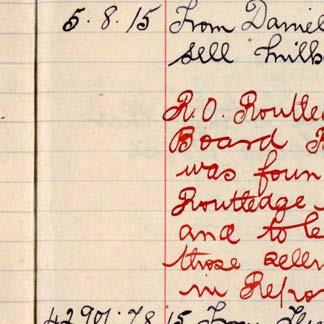 5.8.15 From Daniel
sell milk
R.O. Routled
Board
was foun
Routledge
and to le
those selle
in Repo
42901.78 15 From